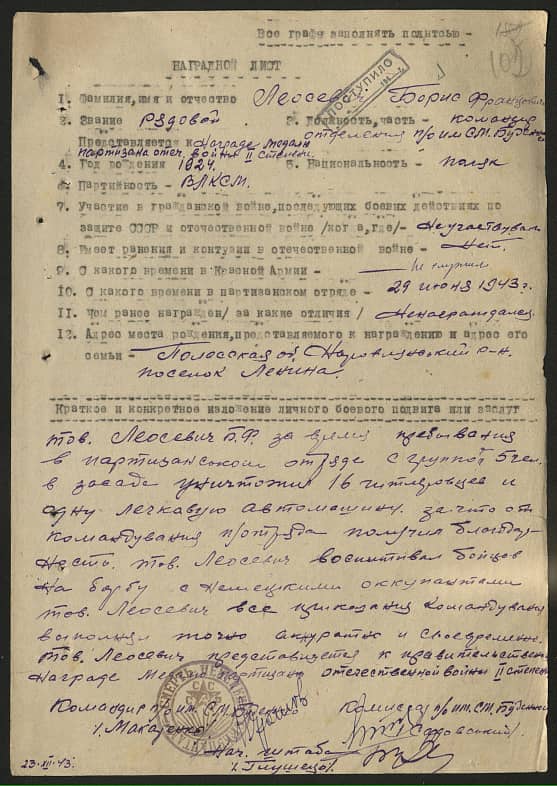 Все графы заполнять полностью –
НАГРАДНОЙ ЛИСТ
ПОСТУПИЛО
1. Фамилия,имя и отчество Леосевич Борис Францович
2. Звание рядовой 3. Должность,часть – командир
отделения п/о им С.М. Буденного
Представляется к Награде Медали
партизана отеч. войны II степени
4. Год рождения 1924 5. Национальность – поляк
6. Партийность – ВЛКСМ.
7. Участие в гражданской войне,последующих боевых действиях по
защите СССР и отечественной войне /когда,где/– Неучаствовал
8. Имеет ранения и контузии в отечественной войне – Нет.
9. С какого времени в Красной Армии – Не служил
10. С какого времени в партизанском отряде – 29 июня 1943 г.
11. Чем ранее награжден/ за какие отличия / Ненагражданся
12. Адрес места рождения,представляемого к награждению и адрес его
семьи – Полесская об Наровлянський р-н.
поселок Ленина.
Краткое и конкретное изложение личного боевого подвига или заслуг
тов. Леосевич Б.Ф. за время пребывания
в партизанськом отряде с группой 5 чел.
в засаде уничтожил 16 гитлеровцев и
одну легкавую автомашину. за что от
командувания п/отряда получил благодар-
ность. тов. Леосевич воспитвал бойцов
на борбу с немецкими оккупантами
тов. Леосевич все приказания командувания
выполнял точно акуратно и своевременно.
Тов. Леосевич представляется к правительственной
Награде Медали партизана отечественной войны II степени
Командир п/о им. С.М. Буденного Комиссар п/о им. С.М. Буденного
/. Макаренко / Садовський/
Нач. штаба
/. Глушець/
23.XII.43.